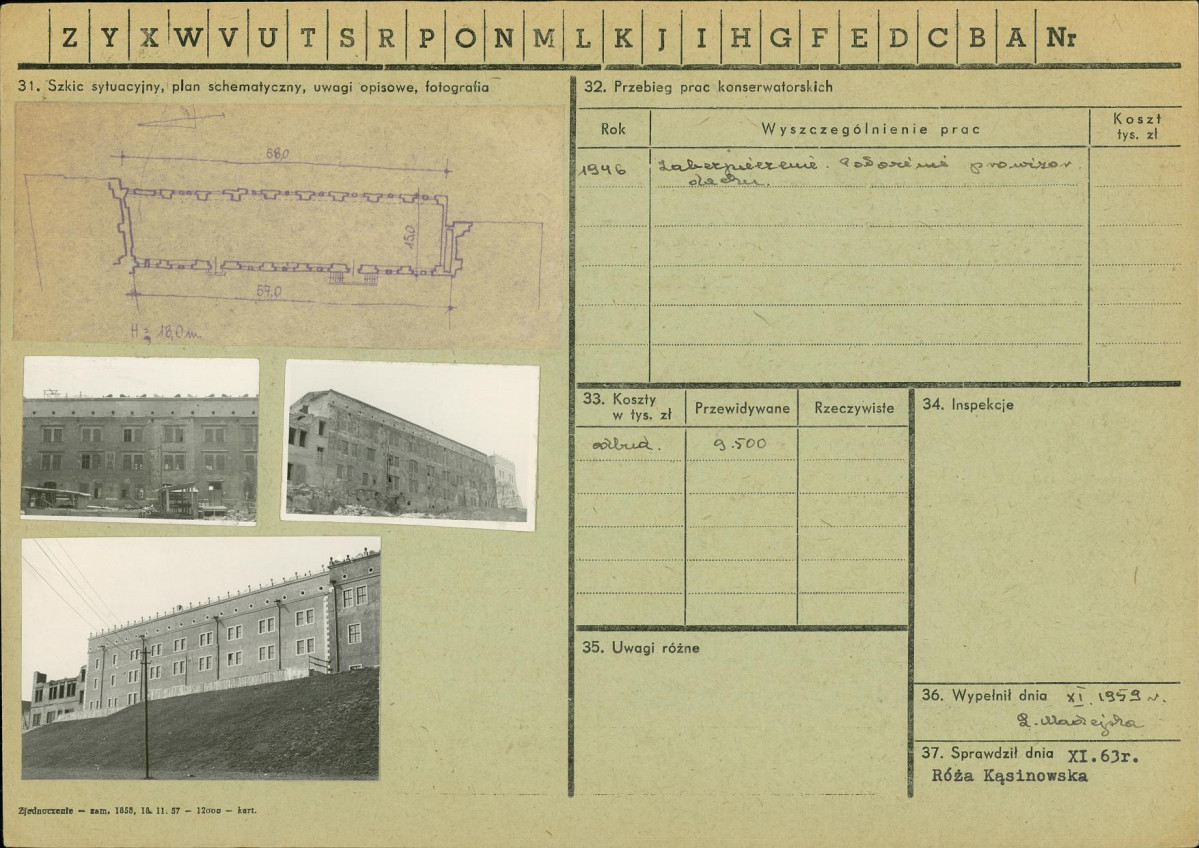 Z Y X W V U T S R P O N M L K J I H G F E D C B A Nr
31. Szkic sytuacyjny, plan schematyczny, uwagi opisowe, fotografia
58,0
15,0
57,0
H = 18,0 m
32. Przebieg prac konserwatorskich
Rok
Wyszczególnienie prac
Koszt
tys. zł
1946 Zabezpieczenie. Położenie prowizor.
dachu.
33. Koszty
w tys. zł
Przewidywane
Rzeczywiste
odbud. 9.500
34. Inspekcje
35. Uwagi różne
36. Wypełnił dnia XI. 1959 r.
37. Sprawdził dnia XI.63r.
Róża Kąsinowska
Zjednoczenie — zam. 1858, 18. 11. 57 — 12000 — kart.